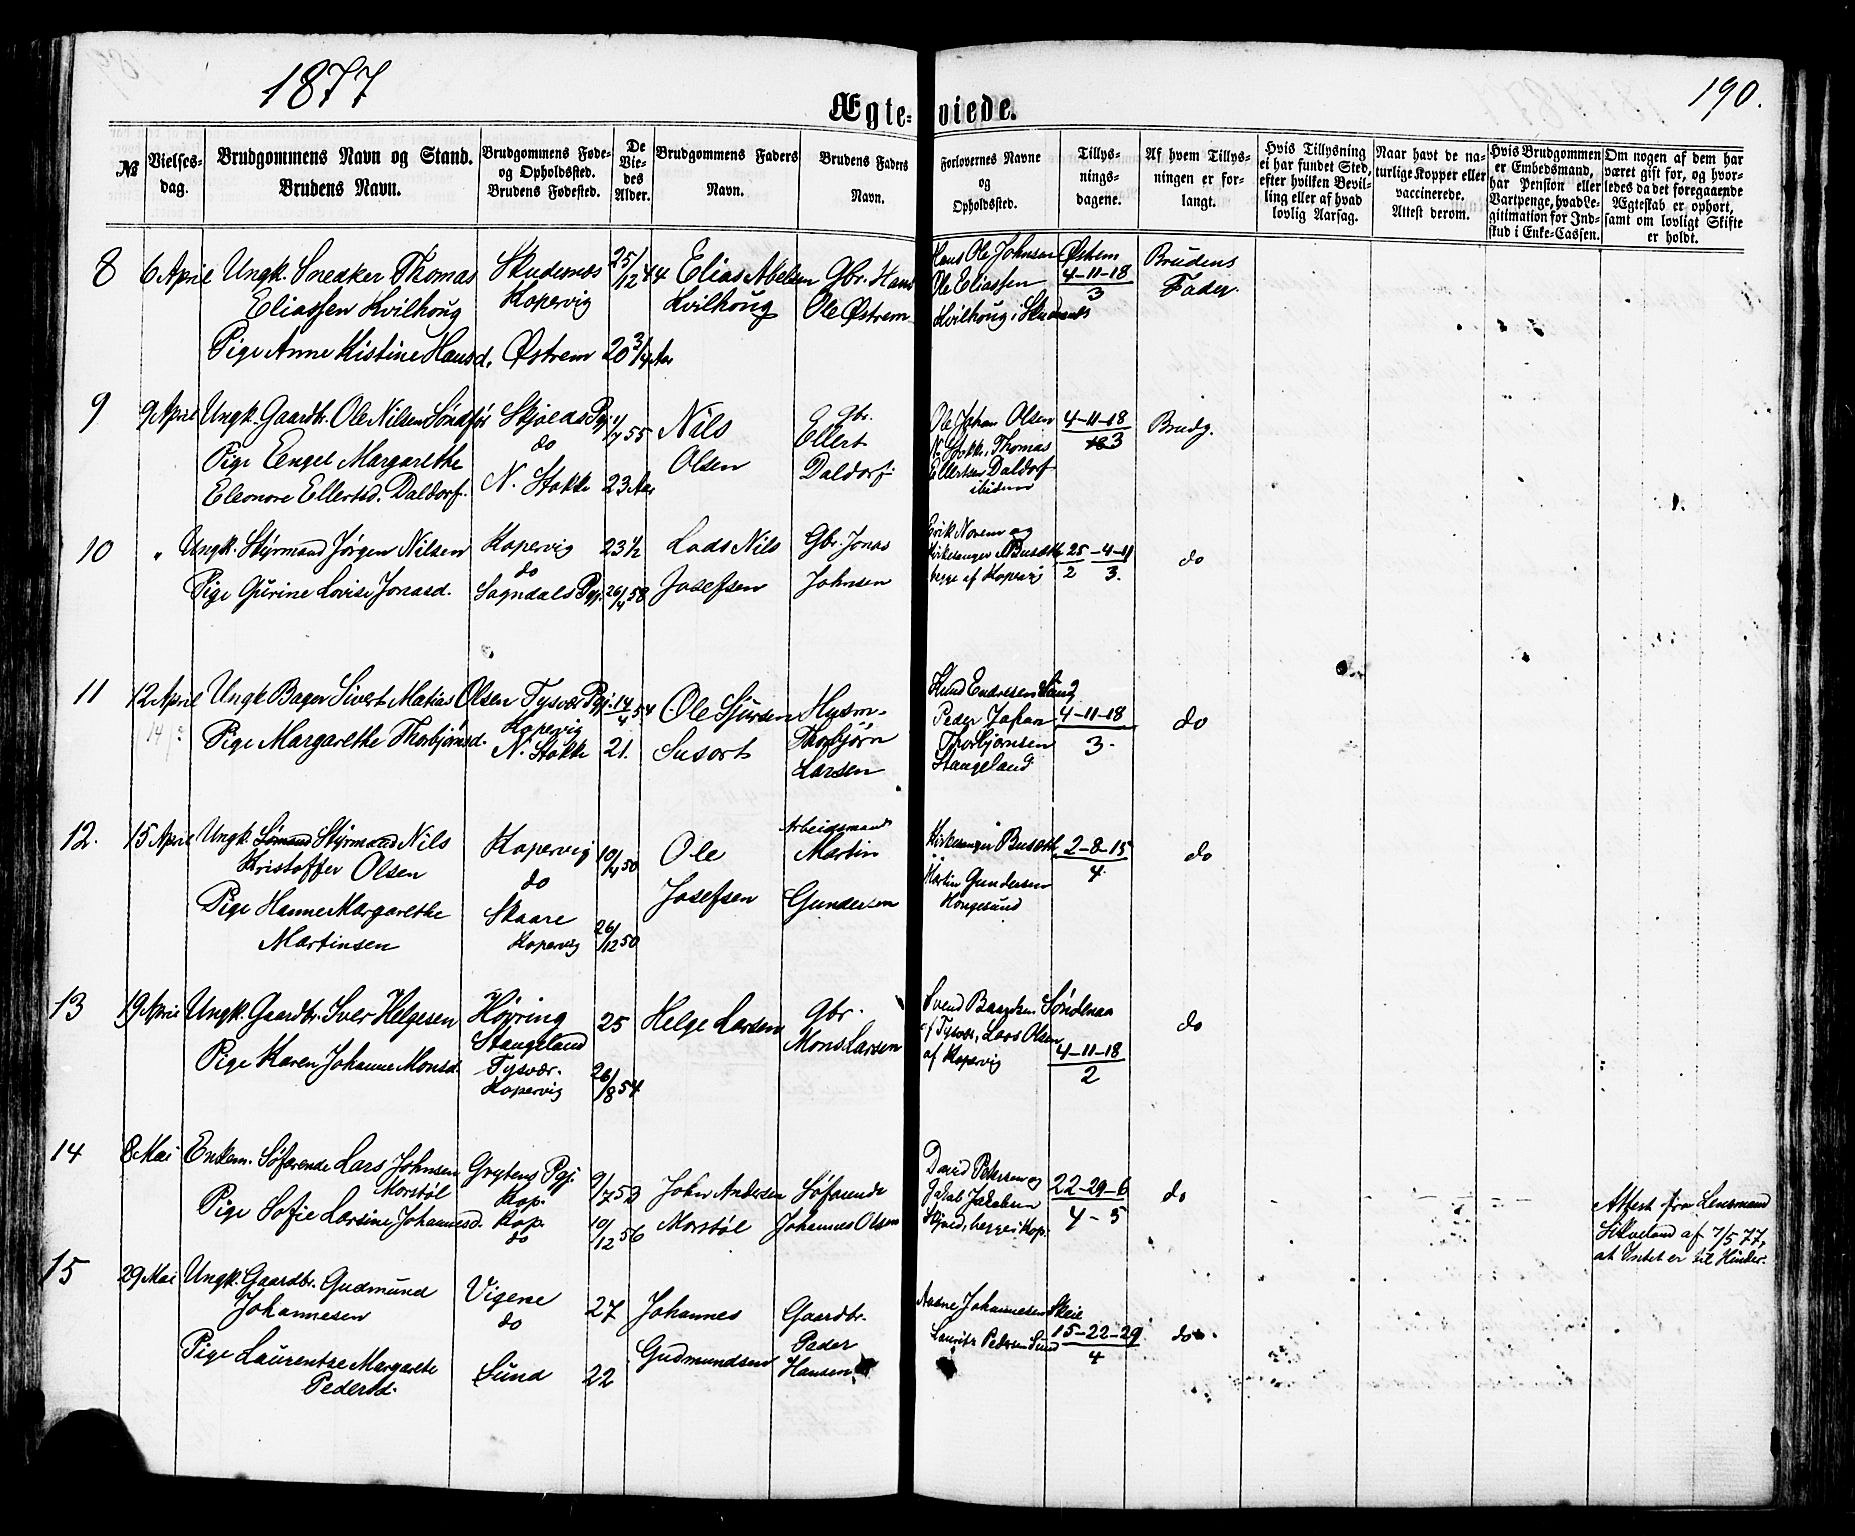 1877
190.
Ægte-viede.
№
Vielses-dag.
Brudgommens Navn og Stand.
Brudens Navn.
Brudgommens Føde-
og Opholdssted.
Brudens Fødested.
De
Vie-
des
Alder.
Brudgommens Faders
Navn.
Brudens Faders
Navn.
Forlovernes Navne
og
Opholdssted.
Tillys-
nings-
dagene.
Af hvem Tillys-
ningen er for-
langt.
Hvis Tillysning
ei har fundet Sted,
efter hvilken Bevil-
ling eller af hvad
lovlig Aarsag.
Naar havt de na-
turlige Kopper eller
vaccinerede.
Attest derom.
Hvis Brudgommen
er Embedsmand,
har Pension eller
Vartpenge, hvad Le-
gitimation for Ind-
skud i Enke-Cassen.
Om nogen af dem har
været gift før, og hvor-
ledes da det foregaaende
Ægteskab er ophørt,
samt om lovligt Skifte
er holdt.
8 6 April Ungk. Snedker Thomas
Eliassen Hvilhoug
Pige Anne Kistine Hansd.
Skudesnæs
Kopervig
Østrem
25/12 44
20 3/4 Aar
Elias Abelsen
Hvilhoug
Gbr. Hans
Ole Østrem
Hans Ole Johnsen Østrem
Ole Eliassen
Hvilhoug i Skudesnæs
4-11-18
3
Brudens
Fader.
9 9 April Ungk. Gaardbr. Ole Nilsen Søndfør
Pige Eengel Margarethe
Eleonore Ellertsd. Daldorf.
Skjolds Pgj.
do
N. Stokke
1/7 55
23 Aar
Nils
Olsen
Gbr.
Ellert
Daldorf
Ole Johan Olsen
N. Stokke, Thomas
Ellertsen Daldorf
ibidem
4-11-18
3
Brudg.
10 " Ungk. Styrmand Jørgen Nilsen
Pige Gurine Lovise Jonasd.
Kopervig
do
Sogndals Pgj.
23½
26/4 58
Lods Nils
Josefsen
Gbr. Jonas
Johnsen
Erik Norem og
Kirkesanger Busæth
begge af Kopervig
25-4-11
2 3.
do
11 12 April Ungk Bager Sivert Matias Olsen
Pige Margarethe Thorbjørnsd.
Tysvær Pgj.
Kopervig
N. Stokke
14/4 54
21.
Ole Sjursen
Susort
Husm.
Thorbjørn
Larsen
Knud Endresen Stang
Peder Johan
Thorbjørnsen
Stangeland
4-11-18
3.
do
12. 15 April Ungk. Sømand Styrmand Nils
Kristoffer Olsen
Pige Hanne Margarethe
Martinsen
Kopervig
do
Skaare
Kopervig
10/4 50
26/12 50
Ole
Josefsen
Arbeidsmand
Martin
Gundersen
Kirkesanger Busæth
Martin Gundersen
Kongesund
2-8-15
4
do
13 19 April Ungk. Gaardbr. Iver Helgesen
Pige Karen Johanne Monsd.
Høvring
Stangeland
Tysvær.
Kopervig
25
26/8 54
Helge Larsen
Gbr.
Mons Larsen
Svend Baardsen Søndenaa
af Tysvær, Lars Olsen
af Kopervig
4-11-18
2
do
14 8 Mai Enkem. Søfarende Lars Johnsen
Morstøl
Pige Sofie Larsine Johannesd.
Grytens Pgj.
Kop.
Kop.
do
9/7 53
10/12 56
John Andersen
Morstøl
Søfarende
Johannes Olsen
David Petersen og
Jakob Jakobsen
begge i Kop.
22-29-6
4-5
do
Attest fra Lensmand
af 7/5 77,
at Intet er til Hinder.
15 29 Mai Ungk. Gaardbr. Gudmund
Johannesen
Pige Laurentze Margarete
Pedersd.
Vigene
do
Sund
27
22
Johannes
Gudmundsen
Gaardbr.
Peder
Hansen
Aadne Johannesen Skeie
Laurits Pedersen Sund
15-22-29
4
do.